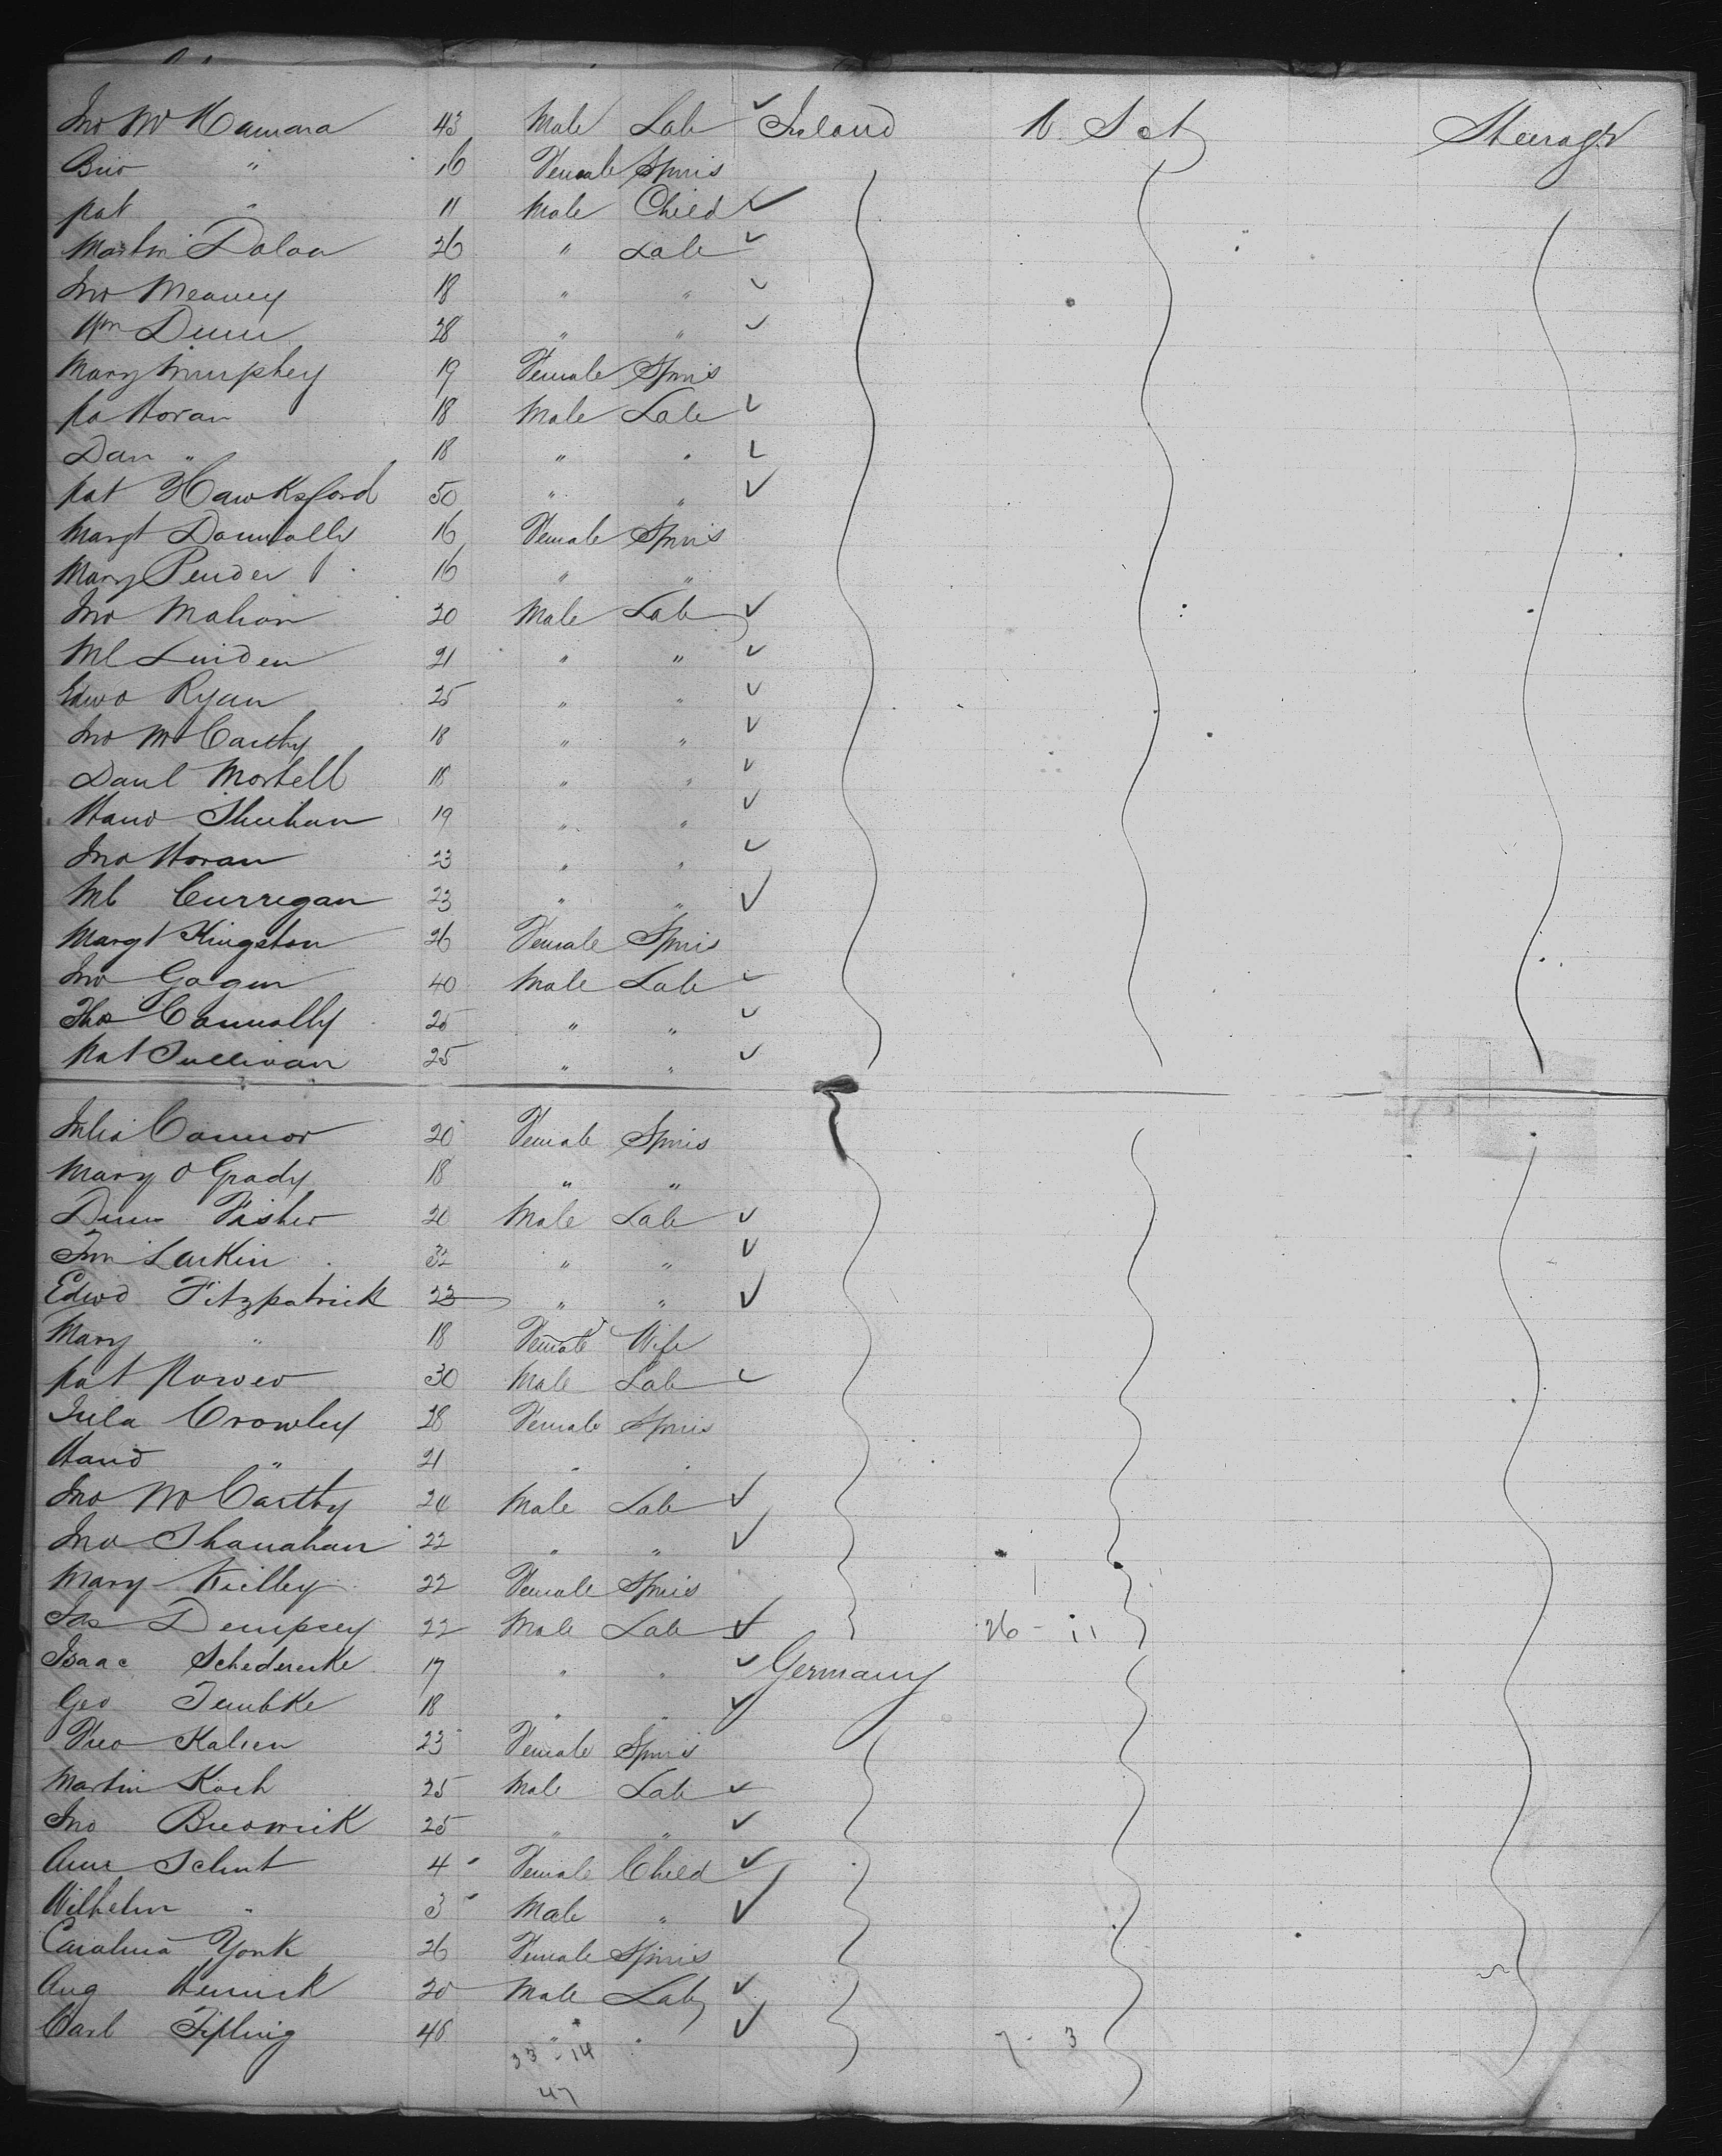 Jno McNamara 43 Male Lab Ireland U. S A Steerage
" 16 Female Spins
Pat " 11 Male Child
Martin Dolan 26 " Lab
Jno Meaney 18 " "
Wm Dunn 28 " "
Mary Murphey 19 Female Spins
Pa Horan 18 Male Lab
Dan " 18 " "
Pat Hawksford 50 " "
Margt Donnolly 16 Female Spins
Mary Pender 16 " "
Jno Mahon 30 Male Lab
Ml Linden 21 " "
Edwd Ryan 25 " "
Jno McCarthy 18 " "
Danl Mortell 18 " "
Sheehan 19 " "
Jno Horan 23 " "
Ml Currigan 23 " "
Margt Kingston 26 Female Spins
Jno Gogin 40 Male Lab
Thos Connolly 25 " "
Pat Sullivan 25 " "
Julia Connor 20 Female Spins
Mary O Grady 18 " "
Fisher 20 Male Lab
Larkin 32 " "
Edwd Fitzpatrick 23 " "
Mary " 18 Female Wife
Pat Power 30 Male Lab
Crowley 28 Female Spins
" 21 " "
Jno McCarthy 20 Male Lab
Jno Shanahan 22 " "
Mary Kielley 22 Female Spins
Jas Dempsey 22 Male Lab 26 - 11
Isaac 17 " " Germany
Geo 18 " "
23 Female Spins
Martin Koch 25 Male Lab
Jno 25 " "
4 Female Child
Wilhelm " 3 Male "
Carolina York 26 Female Spins
Aug 20 Male Lab
Carl 48 " " 7 - 3
33 - 14
47